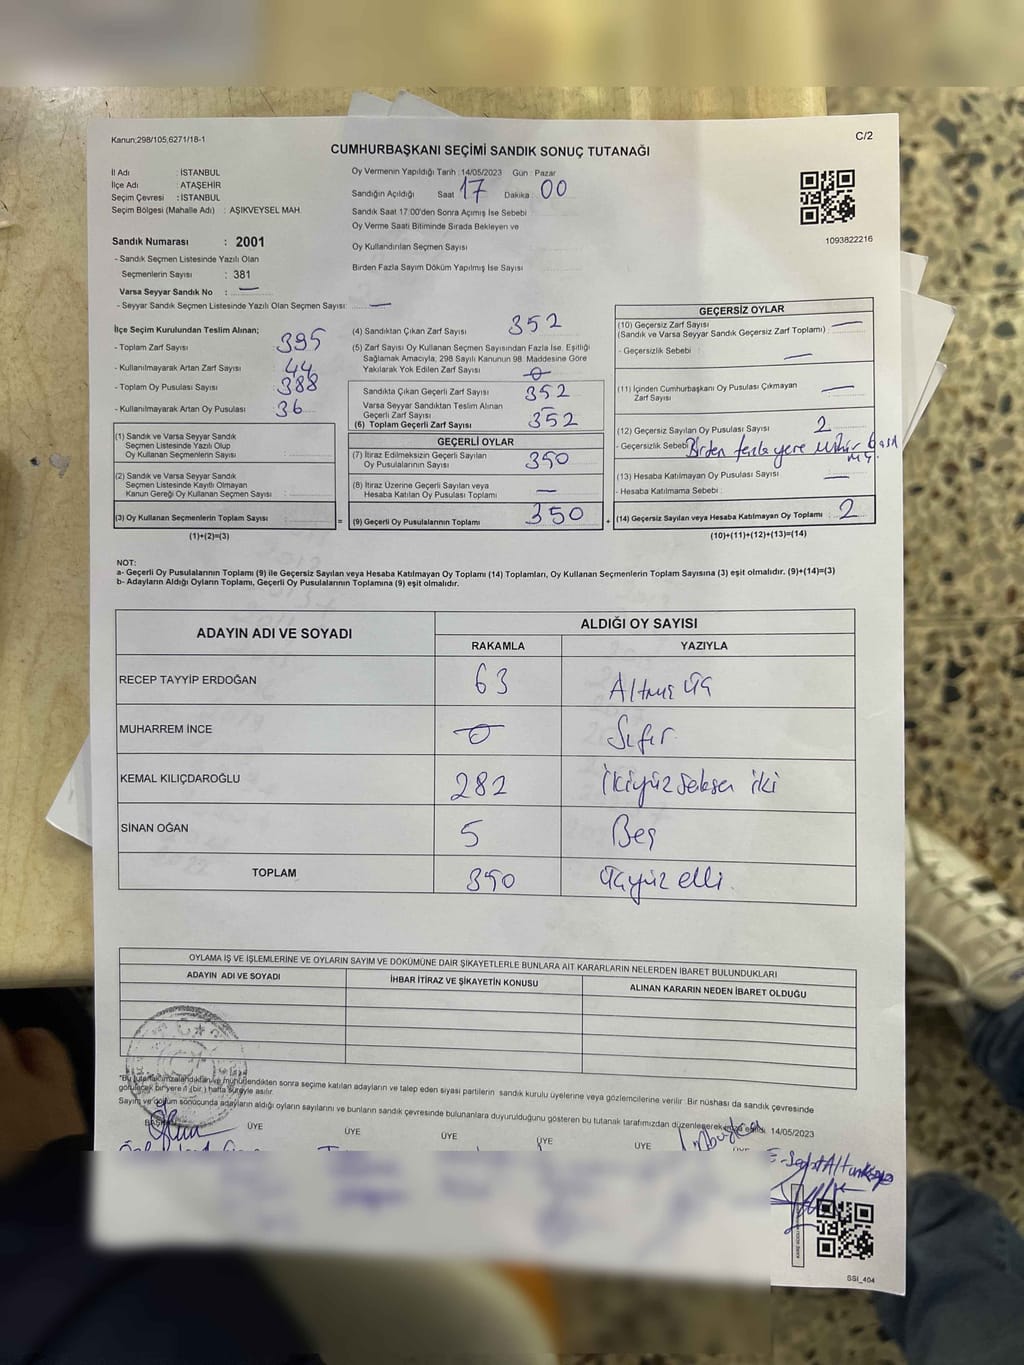 Kanun;298/105,6271/18-1
C/2
CUMHURBAŞKANI SEÇİMİ SANDIK SONUÇ TUTANAĞI
İl Adı : İSTANBUL
İlçe Adı : ATAŞEHİR
Seçim Çevresi : İSTANBUL
Seçim Bölgesi (Mahalle Adı) : AŞIKVEYSEL MAH.
Oy Vermenin Yapıldığı Tarih : 14/05/2023 Gün : Pazar
Sandığın Açıldığı Saat 17 Dakika : 00
Sandık Saat 17:00'den Sonra Açımış İse Sebebi
Oy Verme Saati Bitiminde Sırada Bekleyen ve
Oy Kullandırılan Seçmen Sayısı
Birden Fazla Sayım Döküm Yapılmış İse Sayısı
1093822216
Sandık Numarası : 2001
- Sandık Seçmen Listesinde Yazılı Olan
Seçmenlerin Sayısı : 381
Varsa Seyyar Sandık No : —
- Seyyar Sandık Seçmen Listesinde Yazılı Olan Seçmen Sayısı: —
İlçe Seçim Kurulundan Teslim Alınan;
- Toplam Zarf Sayısı 395
- Kullanılmayarak Artan Zarf Sayısı 44
- Toplam Oy Pusulası Sayısı 388
- Kullanılmayarak Artan Oy Pusulası 36
(1) Sandık ve Varsa Seyyar Sandık
Seçmen Listesinde Yazılı Olup
Oy Kullanan Seçmenlerin Sayısı :
(2) Sandık ve Varsa Seyyar Sandık
Seçmen Listesinde Kayıtlı Olmayan
Kanun Gereği Oy Kullanan Seçmen Sayısı :
(3) Oy Kullanan Seçmenlerin Toplam Sayısı :
(1)+(2)=(3)
=
(4) Sandıktan Çıkan Zarf Sayısı 352
(5) Zarf Sayısı Oy Kullanan Seçmen Sayısından Fazla İse, Eşitliği
Sağlamak Amacıyla, 298 Sayılı Kanunun 98. Maddesine Göre
Yakılarak Yok Edilen Zarf Sayısı 0
Sandıkta Çıkan Geçerli Zarf Sayısı 352
Varsa Seyyar Sandıktan Teslim Alınan
Geçerli Zarf Sayısı —
(6) Toplam Geçerli Zarf Sayısı 352
GEÇERLİ OYLAR
(7) İtiraz Edilmeksizin Geçerli Sayılan
Oy Pusulalarının Sayısı 350
(8) İtiraz Üzerine Geçerli Sayılan veya
Hesaba Katılan Oy Pusulası Toplamı —
(9) Geçerli Oy Pusulalarının Toplamı 350
+
GEÇERSİZ OYLAR
(10) Geçersiz Zarf Sayısı
(Sandık ve Varsa Seyyar Sandık Geçersiz Zarf Toplamı) : —
- Geçersizlik Sebebi : —
(11) İçinden Cumhurbaşkanı Oy Pusulası Çıkmayan
Zarf Sayısı —
(12) Geçersiz Sayılan Oy Pusulası Sayısı : 2
- Geçersizlik Sebebi Birden fazla yere mühür basıl
mış.
(13) Hesaba Katılmayan Oy Pusulası Sayısı : —
- Hesaba Katılmama Sebebi :
(14) Geçersiz Sayılan veya Hesaba Katılmayan Oy Toplamı : 2
(10)+(11)+(12)+(13)=(14)
NOT:
a- Geçerli Oy Pusulalarının Toplamı (9) ile Geçersiz Sayılan veya Hesaba Katılmayan Oy Toplamı (14) Toplamları, Oy Kullanan Seçmenlerin Toplam Sayısına (3) eşit olmalıdır. (9)+(14)=(3)
b- Adayların Aldığı Oyların Toplamı, Geçerli Oy Pusulalarının Toplamına (9) eşit olmalıdır.
ADAYIN ADI VE SOYADI ALDIĞI OY SAYISI
RAKAMLA YAZIYLA
RECEP TAYYİP ERDOĞAN 63 Altmış üç
MUHARREM İNCE 0 Sıfır
KEMAL KILIÇDAROĞLU 282 İkiyüz seksen iki
SİNAN OĞAN 5 Beş
TOPLAM 350 üçyüz elli.
OYLAMA İŞ VE İŞLEMLERİNE VE OYLARIN SAYIM VE DÖKÜMÜNE DAİR ŞİKAYETLERLE BUNLARA AİT KARARLARIN NELERDEN İBARET BULUNDUKLARI
ADAYIN ADI VE SOYADI İHBAR İTİRAZ VE ŞİKAYETİN KONUSU ALINAN KARARIN NEDEN İBARET OLDUĞU
*Bu tutanak imzalandıktan ve mühürlendikten sonra seçime katılan adayların ve talep eden siyasi partilerin sandık kurulu üyelerine veya gözlemcilerine verilir. Bir nüshası da sandık çevresinde
görülecek bir yere 1 (bir) hafta süreyle asılır.
Sayım ve döküm sonucunda adayların aldığı oyların sayılarını ve bunların sandık çevresinde bulunanlara duyurulduğunu gösteren bu tutanak tarafımızdan düzenlenerek 14/05/2023
ÜYE ÜYE ÜYE ÜYE ÜYE
SSI_404